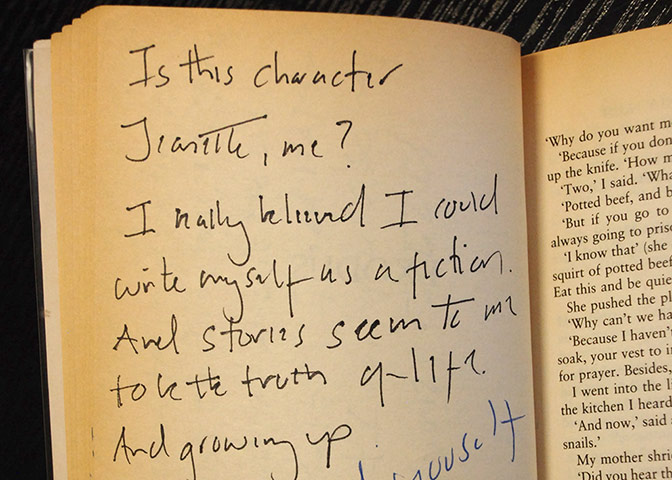 Is this character
Jeanette, me?
I really believed I could
write myself as a fiction.
And stories seem to me
to be the truth of life.
And growing up
yourself
'Why do you want m
'Because if you don
up the knife. 'How m
'Two,' I said. 'Wha
'Potted beef, and b
'But if you go to
always going to priso
'I know that' (she
squirt of potted beef
Eat this and be quie
She pushed the pl
'Why can't we ha
'Because I haven'
soak, your vest to i
for prayer. Besides,
I went into the l
the kitchen I heard
'And now,' said
snails.'
My mother shri
'Did you hear th